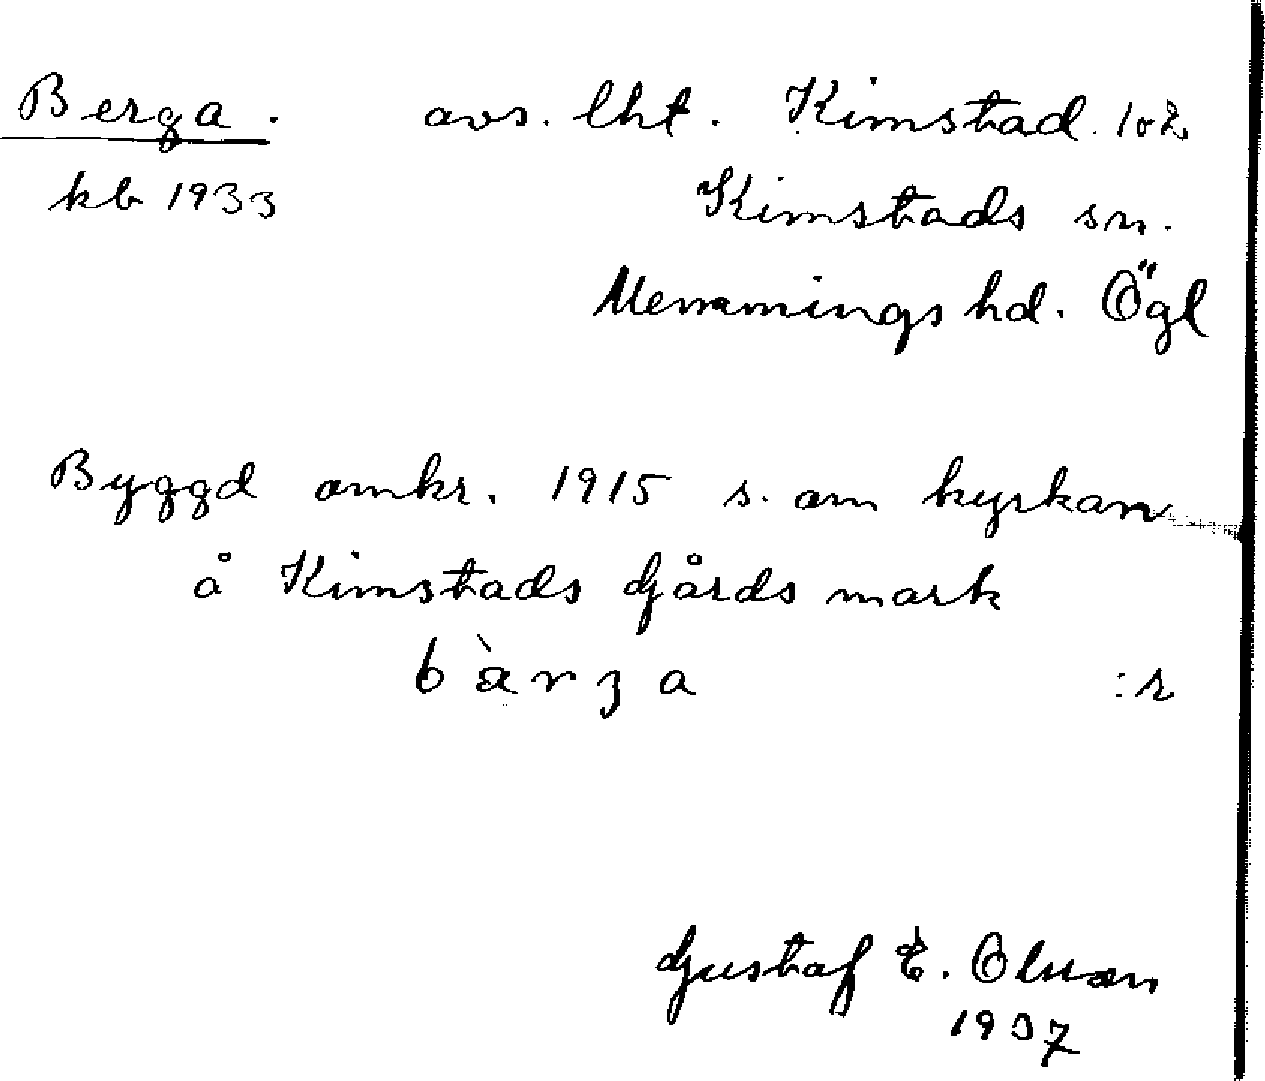 Berga. avs. lht. Kimstad. 1o2
kb 1933 Kimstads sn.
Memmings hd. Ögl
Byggd omkr. 1915 s. om kyrkan
å Kimstads Gårds mark
bàrʒa :r
Gustaf E. Olsson
1937